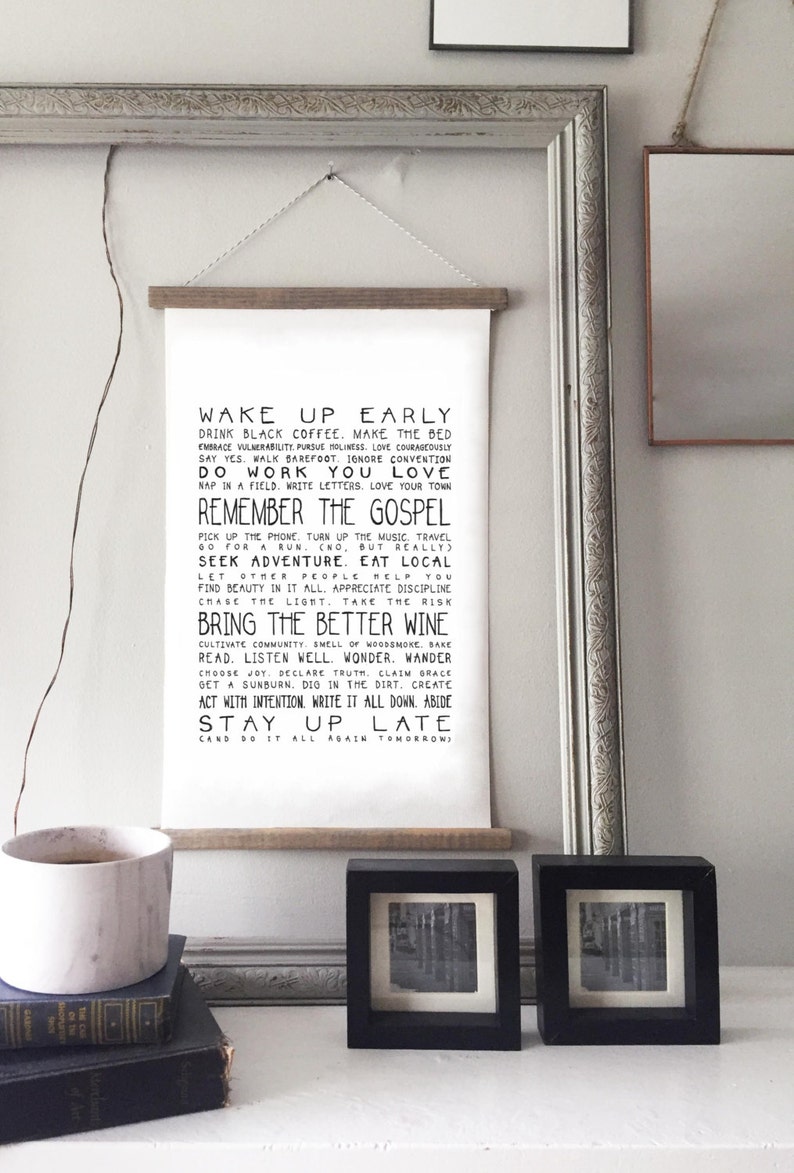 WAKE UP EARLY
DRINK BLACK COFFEE. MAKE THE BED
EMBRACE VULNERABILITY. PURSUE HOLINESS. LOVE COURAGEOUSLY
SAY YES. WALK BAREFOOT. IGNORE CONVENTION
DO WORK YOU LOVE
NAP IN A FIELD. WRITE LETTERS. LOVE YOUR TOWN
REMEMBER THE GOSPEL
PICK UP THE PHONE. TURN UP THE MUSIC. TRAVEL
GO FOR A RUN. (NO, BUT REALLY)
SEEK ADVENTURE. EAT LOCAL
LET OTHER PEOPLE HELP YOU
FIND BEAUTY IN IT ALL. APPRECIATE DISCIPLINE
CHASE THE LIGHT. TAKE THE RISK
BRING THE BETTER WINE
CULTIVATE COMMUNITY. SMELL OF WOODSMOKE. BAKE
READ. LISTEN WELL. WONDER. WANDER
CHOOSE JOY. DECLARE TRUTH. CLAIM GRACE
GET A SUNBURN. DIG IN THE DIRT. CREATE
ACT WITH INTENTION. WRITE IT ALL DOWN. ABIDE
STAY UP LATE
(AND DO IT ALL AGAIN TOMORROW)